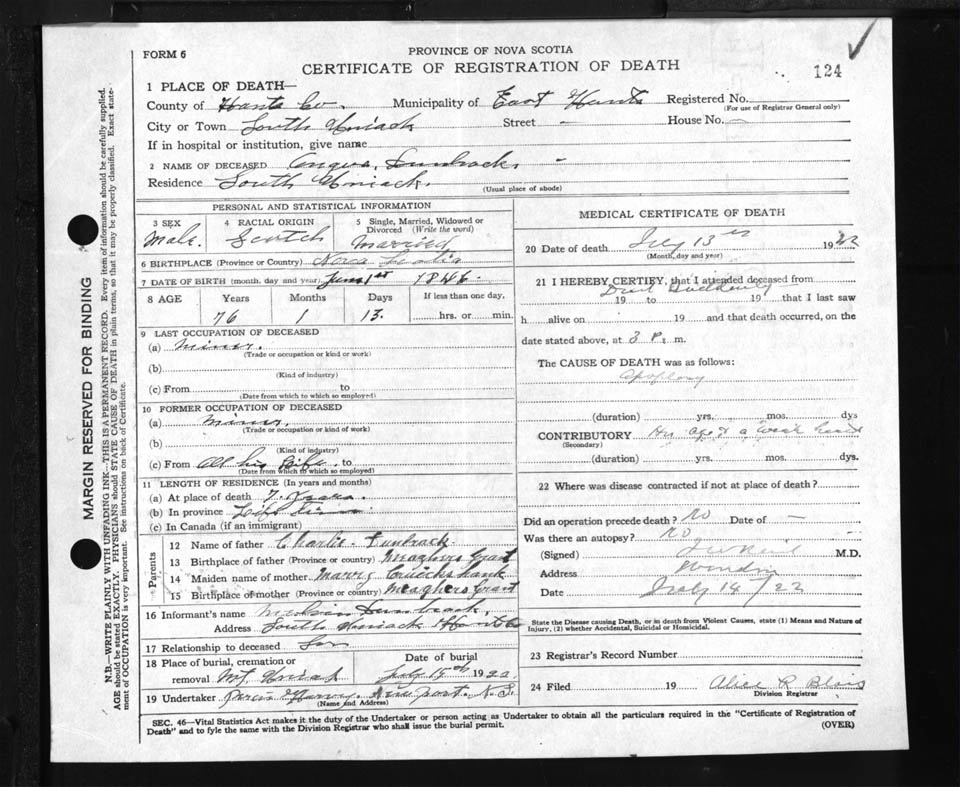 PROVINCE OF NOVA SCOTIA
FORM 6
CERTIFICATE OF REGISTRATION OF DEATH
124
1 PLACE OF DEATH—
County of Hants Co. Municipality of East Hants Registered No.
(For use of Registrar General only)
City or Town South Uniack Street - House No. —
If in hospital or institution, give name
2 NAME OF DECEASED Angus Dunbrack. -
Residence South Uniack.
(Usual place of abode)
PERSONAL AND STATISTICAL INFORMATION
3 SEX 4 RACIAL ORIGIN 5 Single, Married, Widowed or Divorced (Write the word)
Male. Scotch Married
6 BIRTHPLACE (Province or Country) Nova Scotia
7 DATE OF BIRTH (month, day and year) June 1st 1846.
8 AGE Years Months Days If less than one day,
76 1 13. hrs. or min.
9 LAST OCCUPATION OF DECEASED
(a) Miner.
(Trade or occupation or kind of work)
(b)
(Kind of industry)
(c) From to
(Date from which to which so employed)
10 FORMER OCCUPATION OF DECEASED
(a) Miner.
(Trade or occupation or kind of work)
(b)
(Kind of industry)
(c) From All his Life. to
(Date from which to which so employed)
11 LENGTH OF RESIDENCE (In years and months)
(a) At place of death 7 Years.
(b) In province Life Time
(c) In Canada (if an immigrant)
Parents
12 Name of father Charlie Dunbrack.
13 Birthplace of father (Province or country) Meaghers Grant
14 Maiden name of mother Marry Cruickshank
15 Birthplace of mother (Province or country) Meaghers Grant
16 Informant's name Dunbrack,
Address South Uniack Hants Co
17 Relationship to deceased Son
18 Place of burial, cremation or removal Mt Uniack Date of burial July 14th 1922.
19 Undertaker Harvey Newport. N.S.
(Name and Address)
MEDICAL CERTIFICATE OF DEATH
20 Date of death July 13th 1922
(Month, day and year)
21 I HEREBY CERTIFY, that I attended deceased from
Died Suddenly
19 to 19 that I last saw
h alive on 19 and that death occurred, on the
date stated above, at 3 P. m.
The CAUSE OF DEATH was as follows:
Apoplexy
(duration) yrs. mos. dys
CONTRIBUTORY His age & a weak heart
(Secondary)
(duration) yrs. mos. dys.
22 Where was disease contracted if not at place of death?
Did an operation precede death? No Date of —
Was there an autopsy? No
(Signed) M.D.
Address Windsor
Date July 14/22
State the Disease causing Death, or in death from Violent Causes, state (1) Means and Nature of Injury, (2) whether Accidental, Suicidal or Homicidal.
23 Registrar's Record Number
24 Filed 19 Alice R Blois
Division Registrar
SEC. 46—Vital Statistics Act makes it the duty of the Undertaker or person acting as Undertaker to obtain all the particulars required in the "Certificate of Registration of
Death" and to fyle the same with the Division Registrar who shall issue the burial permit.
(OVER)
MARGIN RESERVED FOR BINDING
N.B.—WRITE PLAINLY WITH UNFADING INK—THIS IS A PERMANENT RECORD. Every item of information should be carefully supplied.
AGE should be stated EXACTLY. PHYSICIANS should STATE CAUSE OF DEATH in plain terms, so that it may be properly classified. Exact statement of OCCUPATION is very important. See instructions on back of Certificate.